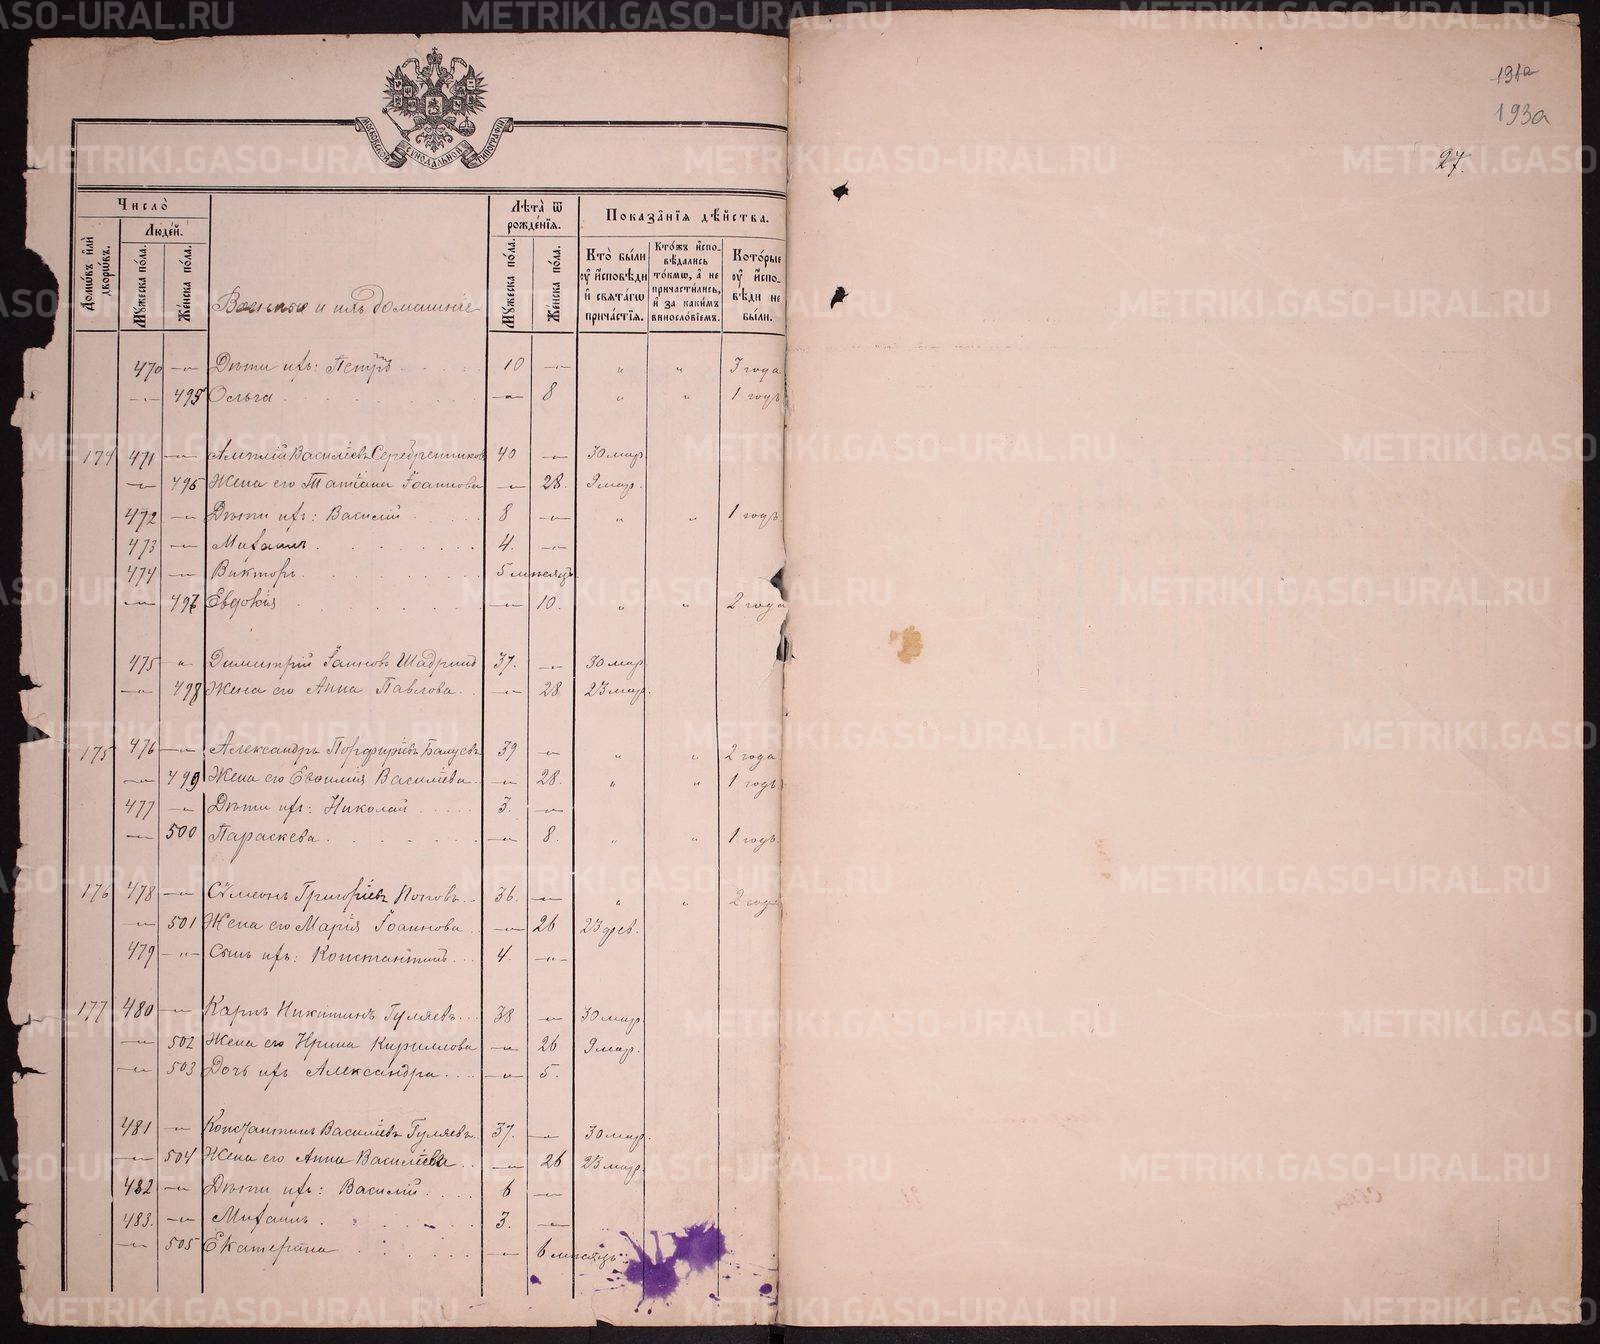 131а
193а
27.
МОСКОВСКОЙ СѴНОДАЛЬНОЙ ТИПОГРАФІИ
Число̀
Людей.
Домѡвъ и҆лѝ дворѡвъ.
Мꙋжеска по́ла.
Же́нска по́ла.
Военные и ихъ домашніе
Лѣта̀ ѿ рожде́нїѧ.
Мꙋжеска по́ла.
Же́нска по́ла.
Показа̂нїѧ дѣ́йства.
Кто̀ бы́ли ᲂу҆ и҆сповѣди и҆ свѧта́гѡ прича́стїѧ.
Кто́жъ и҆спо- вѣдались то́кмѡ, а҆ не причасти́лись, и҆ за каки́мъ винословїемъ.
Кото́рые ᲂу҆ и҆спо- вѣди не бы́ли.
470 —„— Дѣти ихъ: Петръ 10 —„— „ „ 3 года
—„— 495 Ольга —„— 8 „ „ 1 годъ
174 471 —„— Василіевъ Серебренниковъ 40 —„— 30 мар.
—„— 496 Жена его Татіана Іоаннова —„— 28. 9 мар.
472 —„— Дѣти ихъ: Василій 8 —„— „ „ 1 годъ
473 —„— Михаилъ 4. —„—
474 —„— Викторъ 5 мѣсяцъ
—„— 497 Евдокія —„— 10. „ „ 2 года
475 „ Димитрій Іаиновъ Шадринъ 37. —„— 30 мар.
—„— 498 Жена его Анна Павлова —„— 28 23 мар.
175 476 —„— Александръ Порфиріевъ 39 —„— „ „ 2 года
—„— 499 Жена его Евѳимія Василіева —„— 28. „ „ 1 годъ
477 —„— Дѣти ихъ: Николай 3. —„—
—„— 500 Параскева —„— 8. „ „ 1 годъ
176 478 —„— Сѵмеонъ Григоріевъ Поповъ 36. —„— „ „ 2 года
—„— 501 Жена его Марія Іоаннова —„— 26 23 фев.
479 —„— Сынъ ихъ: Константинъ 4. —„—
177 480 —„— Карпъ Никитинъ Гуляевъ 38 —„— 30 мар.
—„— 502 Жена его Ирина Кириллова —„— 26 9 мар.
—„— 503 Дочь ихъ Александра —„— 5.
481 —„— Константинъ Василіевъ Гуляевъ 37. —„— 30 мар.
—„— 504 Жена его Анна Василіева —„— 26 23 мар.
482 —„— Дѣти ихъ: Василій 6 —„—
483. —„— Михаилъ 3. —„—
—„— 505 Екатерина —„— 6 мѣсяцъ
METRIKI.GASO-URAL.RU